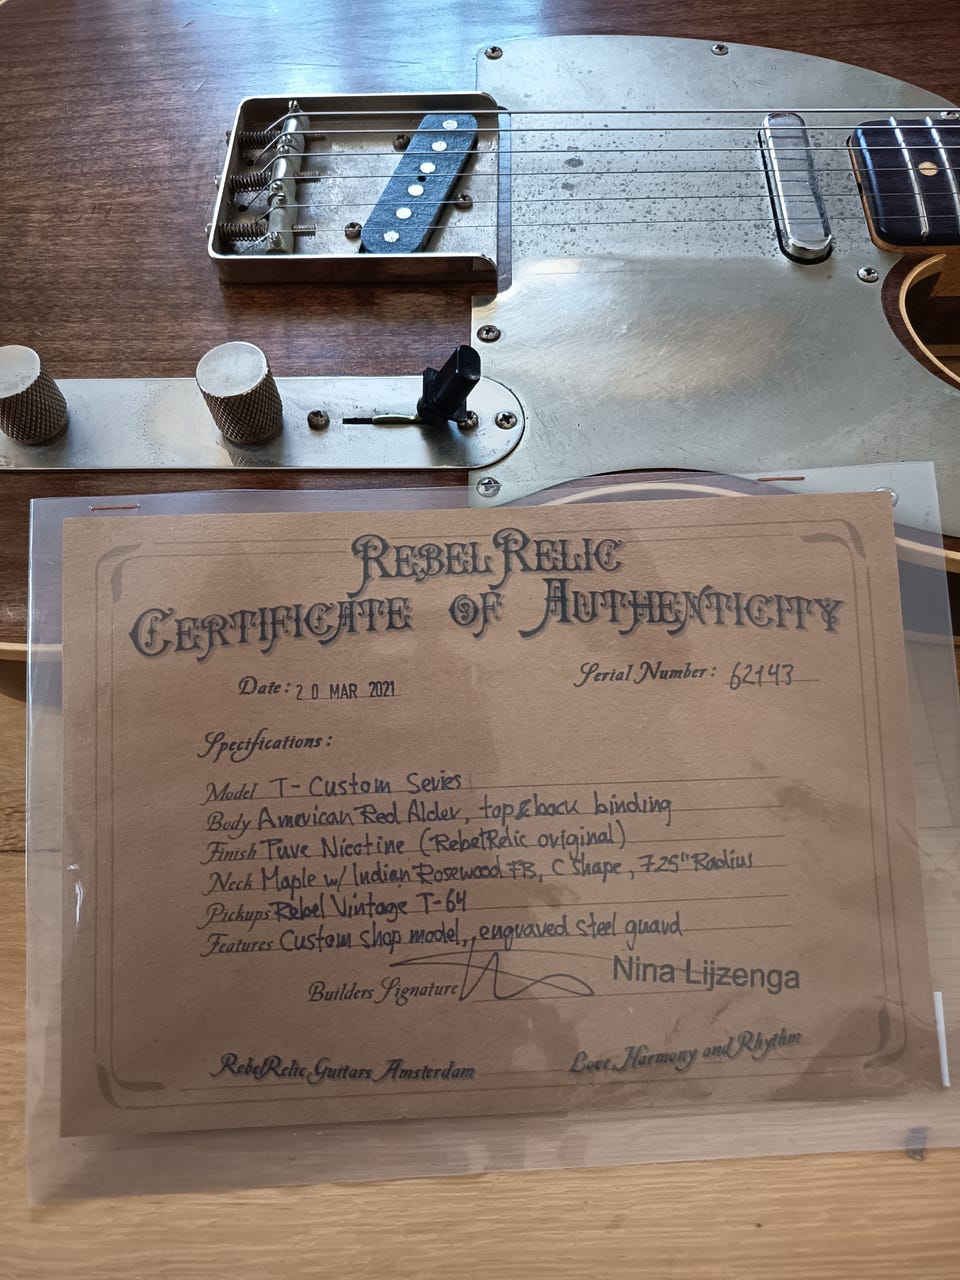 RebelRelic
Certificate of Authenticity
Date: 20 MAR 2021
Serial Number: 62143
Specifications:
Model T-Custom Series
Body American Red Alder, top & back binding
Finish Pure Nicotine (RebelRelic original)
Neck Maple w/ Indian Rosewood FB, C shape, 7.25" Radius
Pickups Rebel Vintage T-64
Features Custom shop model, engraved steel guard
Builders Signature Nina Lijzenga
RebelRelic Guitars Amsterdam
Love, Harmony and Rhythm